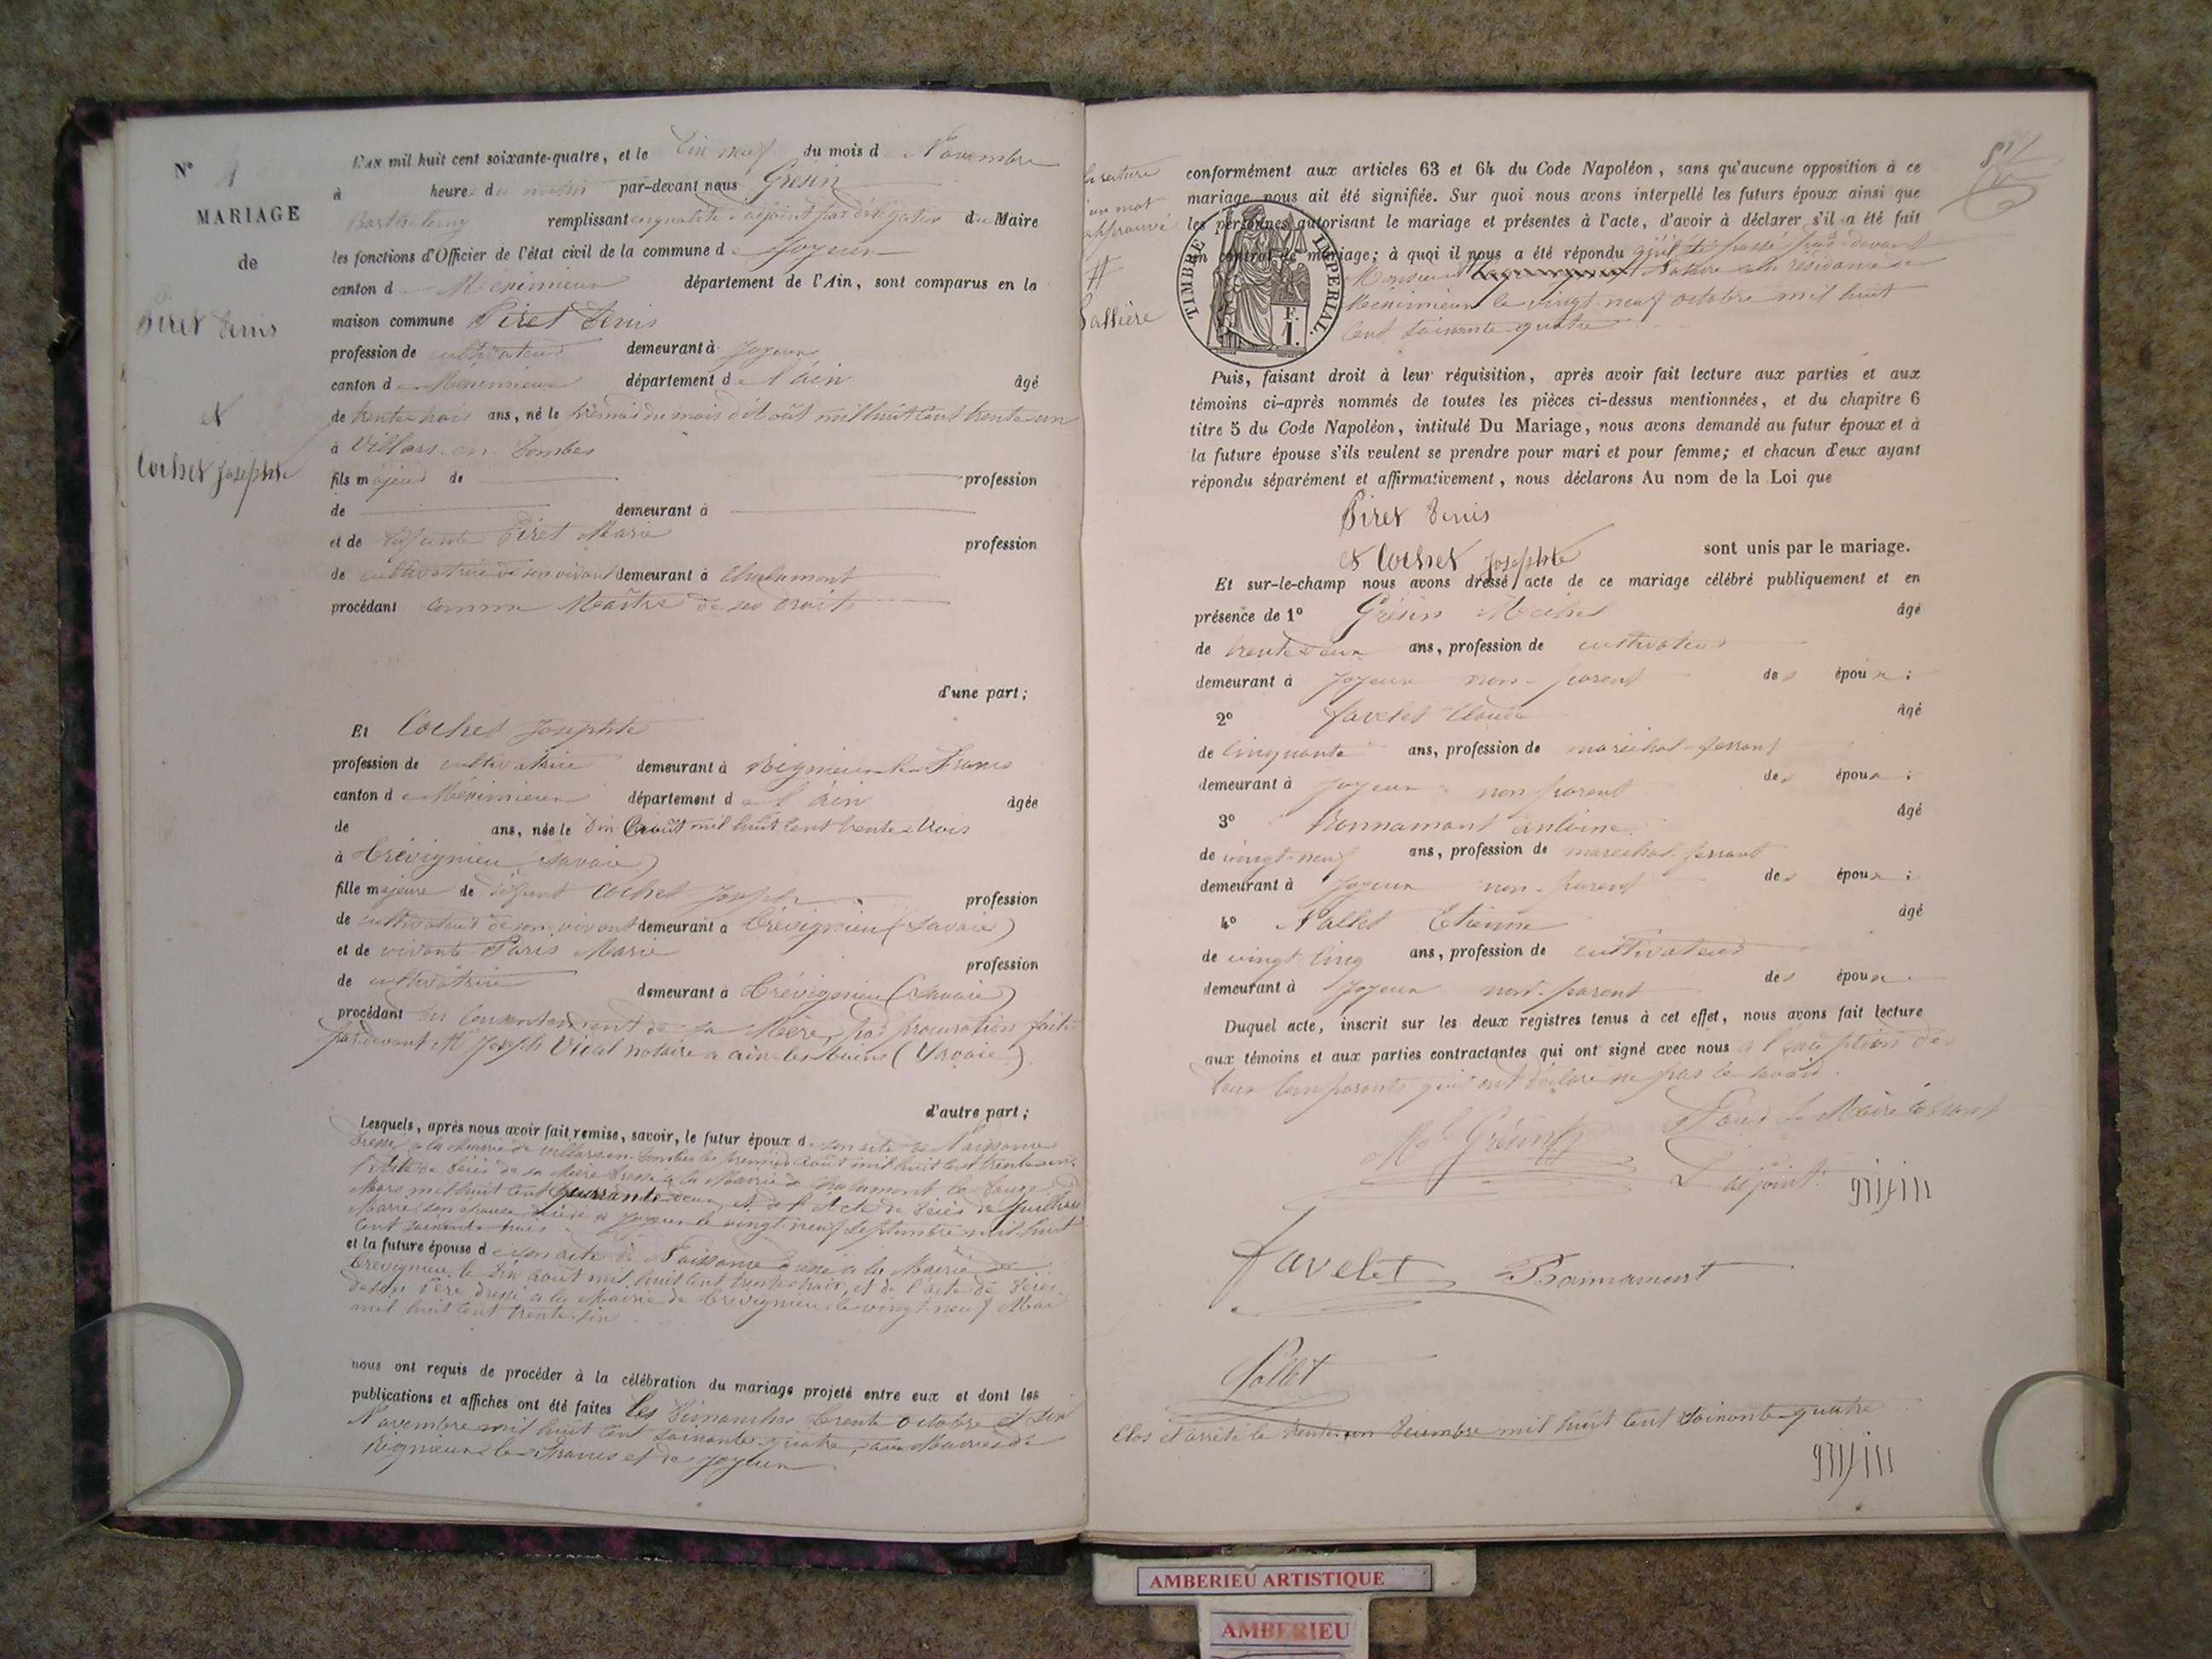 N° 1
MARIAGE
de
Piret Denis
et
Cochet Josephte
L'AN mil huit cent soixante-quatre, et le Dix neuf du mois de Novembre
à heure du matin par-devant nous Grésin
Barthelemy remplissant en qualité d'adjoint par délégation du Maire
les fonctions d'Officier de l'état civil de la commune de Joyeux
canton de Meximieux département de l'Ain, sont comparus en la
maison commune Piret Denis
profession de cultivateur demeurant à Joyeux
canton de Meximieux département de l'ain âgé
de trente trois ans, né le premier du mois d'Août mil huit cent trente un
à Villars-en-Dombes
fils majeur de profession
de demeurant à
et de défunte Piret Marie profession
de cultivatrice de son vivant demeurant à Chalamont
procédant comme Maître de ses droits
d'une part;
Et Cochet Josephte
profession de cultivatrice demeurant à Rignieux-le-Franc
canton de Meximieux département de l'Ain âgée
de ans, née le Dix Août mil huit cent trente trois
à Trévignieu (Savoie)
fille majeure de défunt Cochet Joseph profession
de cultivateur de son vivant demeurant à Trévignieu (Savoie)
et de vivante Paris Marie profession
de cultivatrice demeurant à Trévignieu (Savoie)
procédant du consentement de sa Mère, par procuration faite
pardevant Me Joseph Vidal notaire à aix-les-bains (Savoie)
d'autre part;
Lesquels, après nous avoir fait remise, savoir, le futur époux de son acte de Naissance
dressé à la Mairie de Villars-en-Dombes le premier Août mil huit cent trente un.
l'Acte de Décès de sa Mère dressé à la Mairie de Chalamont le douze
Mars mil huit cent quarante-deux, et de l'Acte de Décès de
Marie, son épouse, décédée à Joyeux le vingt-neuf Septembre mil huit
cent soixante trois
et la future épouse de son acte de Naissance dressé à la Mairie de
Trévignieu le Dix Août mil huit cent trente trois, et de l'acte de Décès
de son Père dressé à la Mairie de Trévignieu le vingt-neuf Mai
mil huit cent trente-six
nous ont requis de procéder à la célébration du mariage projeté entre eux et dont les
publications et affiches ont été faites Les Dimanches trente Octobre et six
Novembre mil huit cent soixante-quatre, aux Mairies de
Rignieux-le-Franc et de Joyeux
la rature
d'un mot
approuvé
conformément aux articles 63 et 64 du Code Napoléon, sans qu'aucune opposition à ce
mariage nous ait été signifiée. Sur quoi nous avons interpellé les futurs époux ainsi que
les personnes autorisant le mariage et présentes à l'acte, d'avoir à déclarer s'il a été fait
un contrat de mariage; à quoi il nous a été répondu qu'il été passé par-devant
Monsieur Notaire à la résidence de
Meximieux le vingt-neuf octobre mil huit
cent soixante quatre
TIMBRE IMPÉRIAL.
F.
1.
Puis, faisant droit à leur réquisition, après avoir fait lecture aux parties et aux
témoins ci-après nommés de toutes les pièces ci-dessus mentionnées, et du chapitre 6
titre 5 du Code Napoléon, intitulé Du Mariage, nous avons demandé au futur époux et à
la future épouse s'ils veulent se prendre pour mari et pour femme; et chacun d'eux ayant
répondu séparément et affirmativement, nous déclarons Au nom de la Loi que
Piret Denis
et Cochet Josephte sont unis par le mariage.
Et sur-le-champ nous avons dressé acte de ce mariage célébré publiquement et en
présence de 1° Grésin Michel âgé
de trente deux ans, profession de cultivateur
demeurant à Joyeux non-parent des époux;
2° Favelet Claude âgé
de cinquante ans, profession de maréchal-ferrant
demeurant à Joyeux non parent des époux;
3° Bonnamant antoine âgé
de vingt-neuf ans, profession de maréchal-ferrant
demeurant à Joyeux non-parent des époux;
4° Pallet Etienne âgé
de vingt cinq ans, profession de cultivateur
demeurant à Joyeux non-parent des époux.
Duquel acte, inscrit sur les deux registres tenus à cet effet, nous avons fait lecture
aux témoins et aux parties contractantes qui ont signé avec nous à l'exception des
deux comparants qui ont déclaré ne pas le savoir.
Pour le Maire absent
L'adjoint
Favelet Bonnamant
Pallet
Clos et arrêté le trente-un Décembre mil huit cent soixante-quatre
AMBERIEU ARTISTIQUE
AMBERIEU